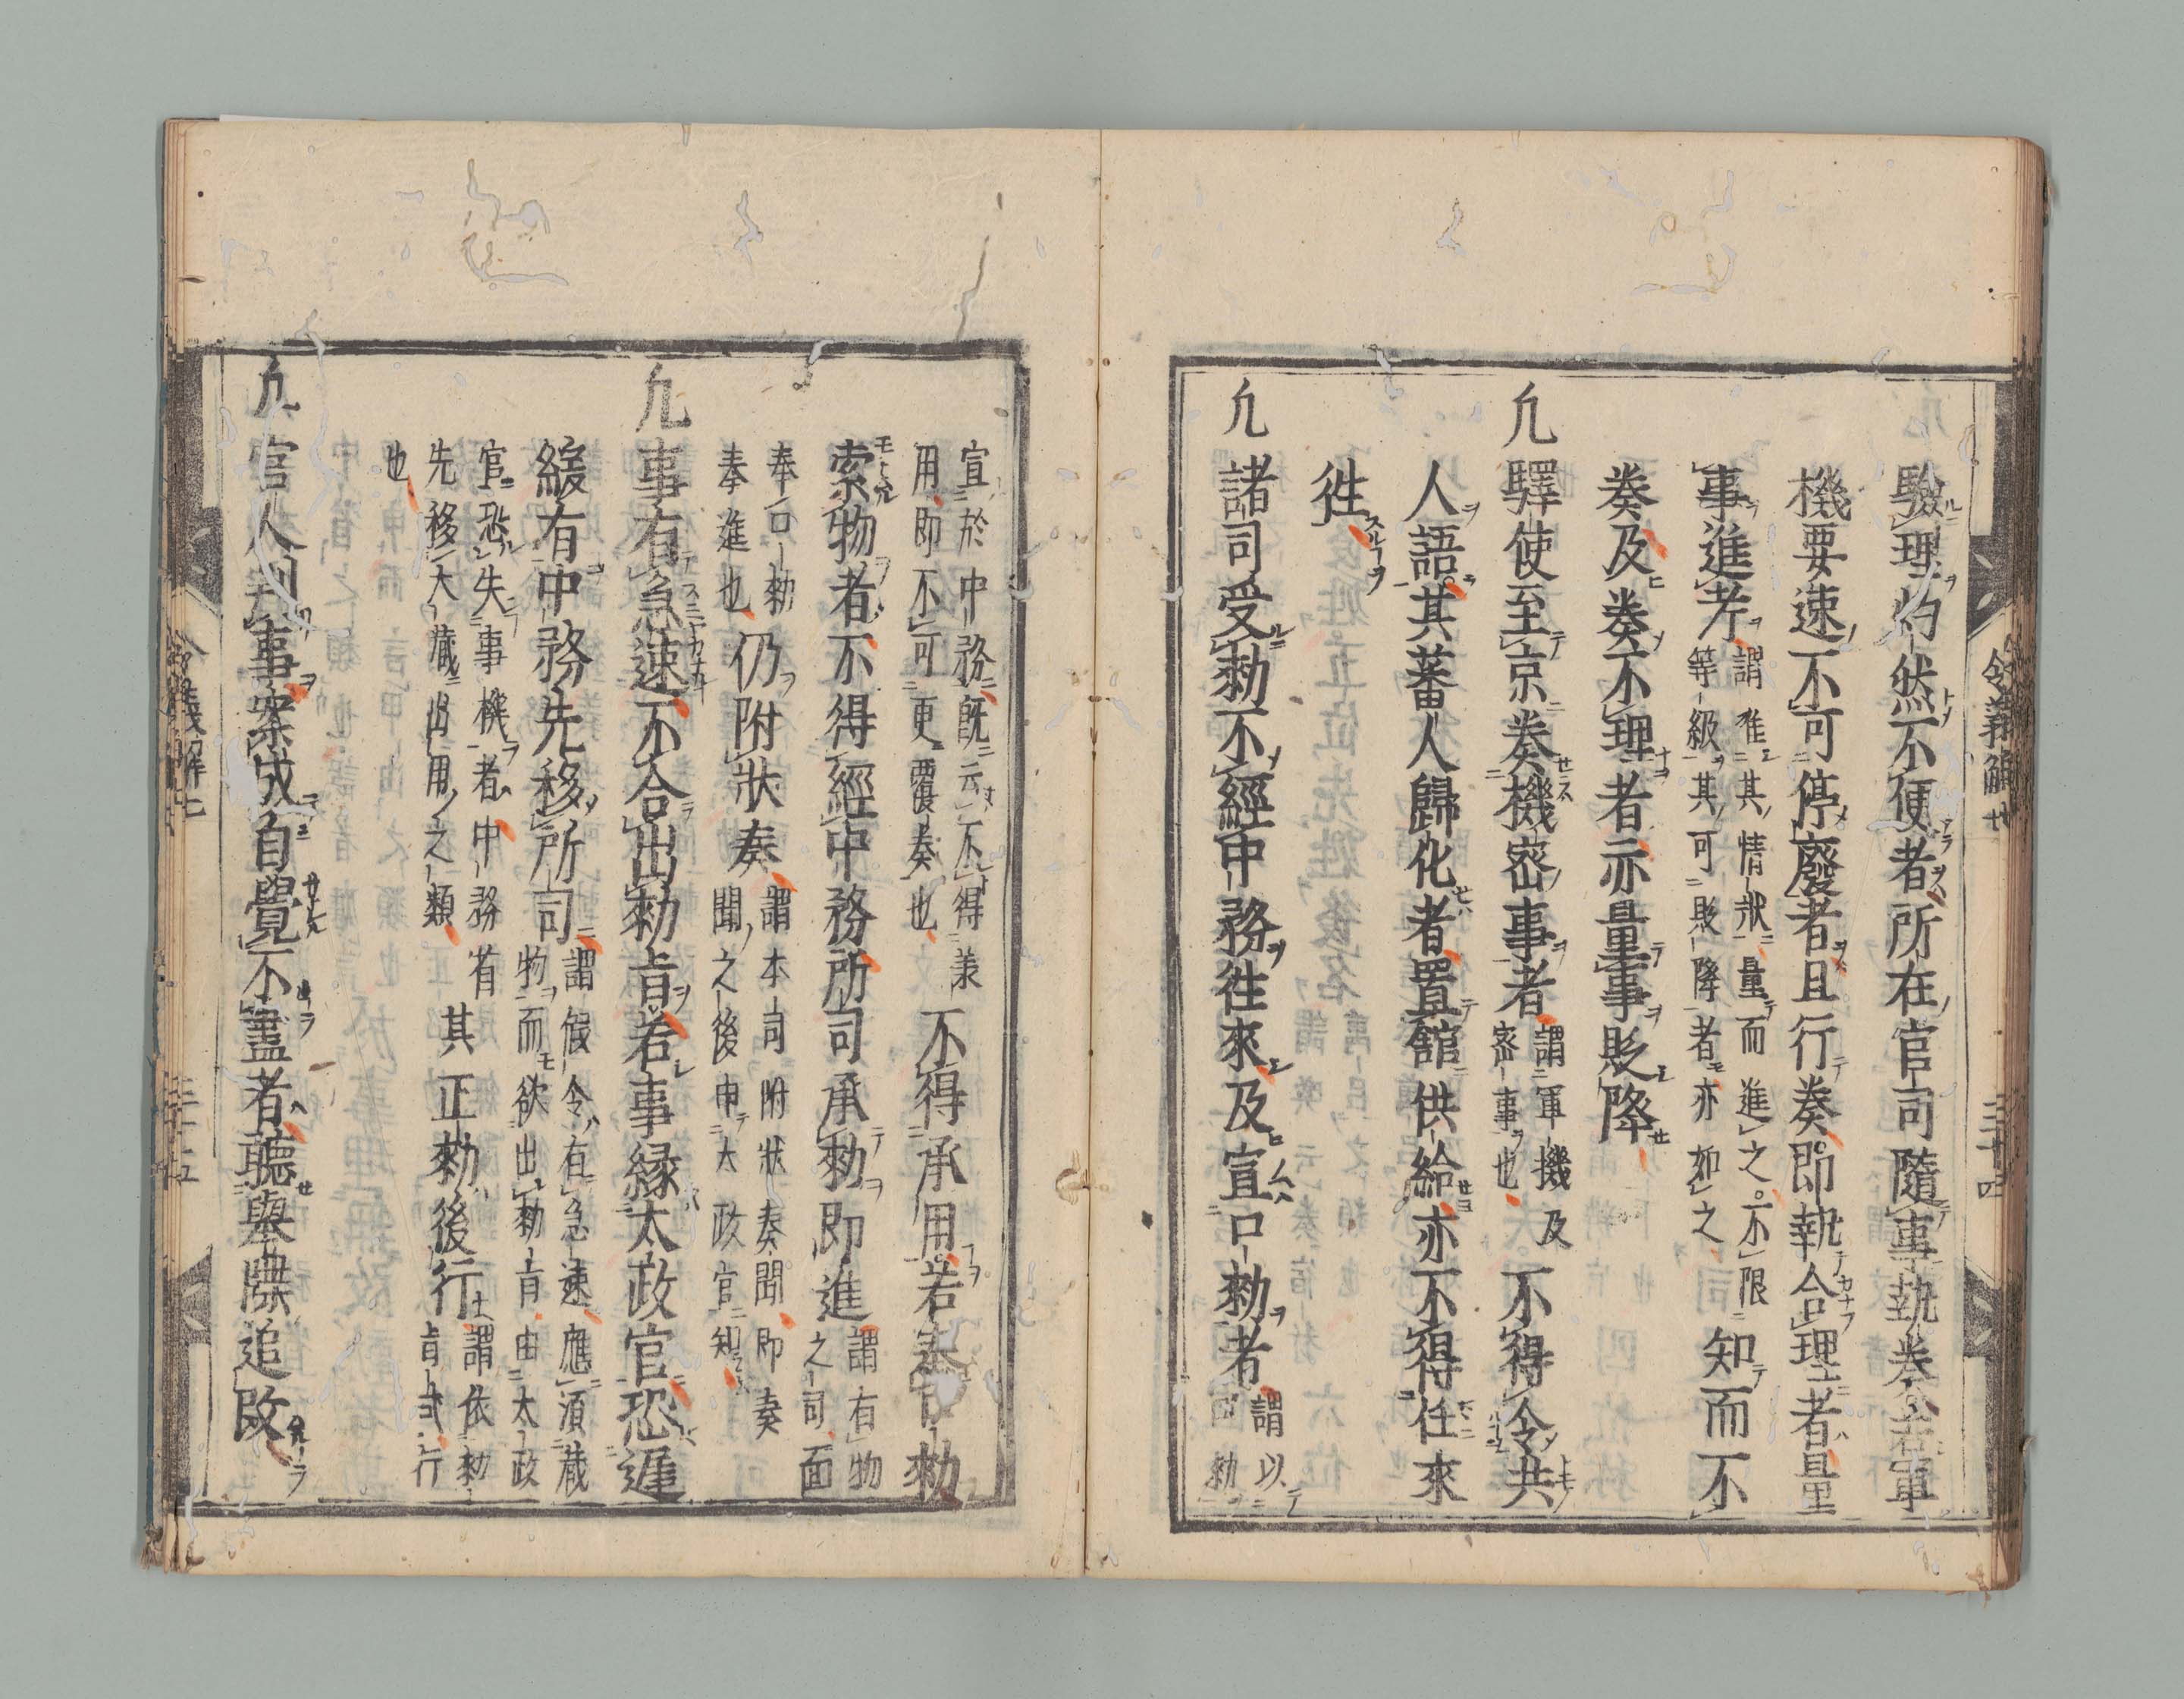 驗理灼然不便者所在官司隨事執奏若軍
機要速不可停廢者且行奏即執合理者量
事進考謂准其情狀量而進之不限
等級其可貶降者亦如之司知而不
奏及奏不理者亦量事貶降
凢驛使至京奏機密事者謂軍機及
密事也不得令共
人語其蕃人歸化者置館供給亦不得任來
徃
凢諸司受勅不經中務徃來及宣口勅者謂以
口勅
令義解七
三十四
宣於中務既云不得兼
用即不可更覆奏也不得承用若奉口勅
索物者不得經中務所司承勅即進謂有物
之司面
奉口勅
奏進也仍附狀奏謂本司附狀奏聞即奏
聞之後申太政官知
凢事有急速不合出勅㫖若事緣太政官恐遲
緩有中務先移所司謂假令有急速應須藏
物而欲出勅㫖由太政
官恐失事機者中務省
先移大藏出用之類
也其正勅後行謂依勅
㫖式行
凢官人判事案成自覺不盡者聽舉牒追改
令義解七
三十五